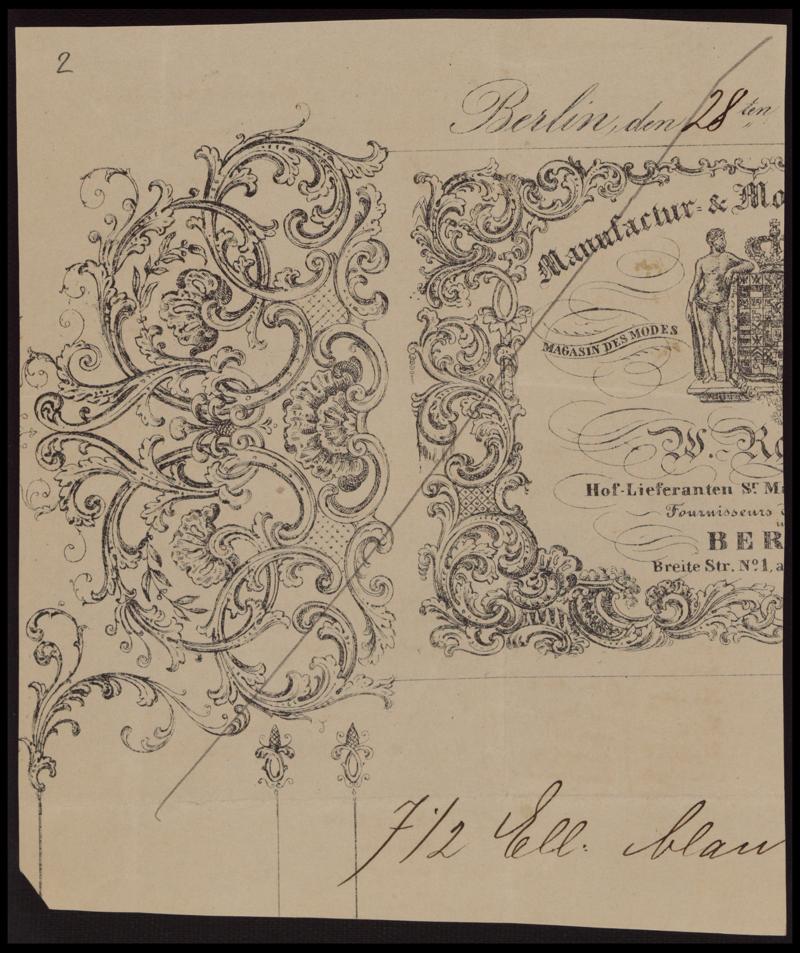 2
Berlin, den 28ten
Manufactur- & Mo
MAGASIN DES MODES
W. Ro
Hof-Lieferanten Sr. Ma
Fournisseurs
BER
Breite Str. No. 1, a
7 1/2 Ell. blau